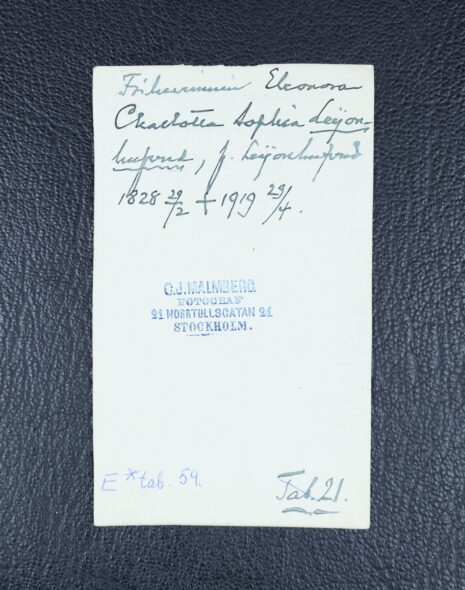 Friherrinnan Eleonora
Charlotta Sophia Leijon-
hufvud, f. Leijonhufvud
1828 29/2 + 1919 29/4.
G.J. MALMBERG
FOTOGRAF
21 NORRTULLSGATAN 21
STOCKHOLM.
E * tab. 59.
Tab. 21.